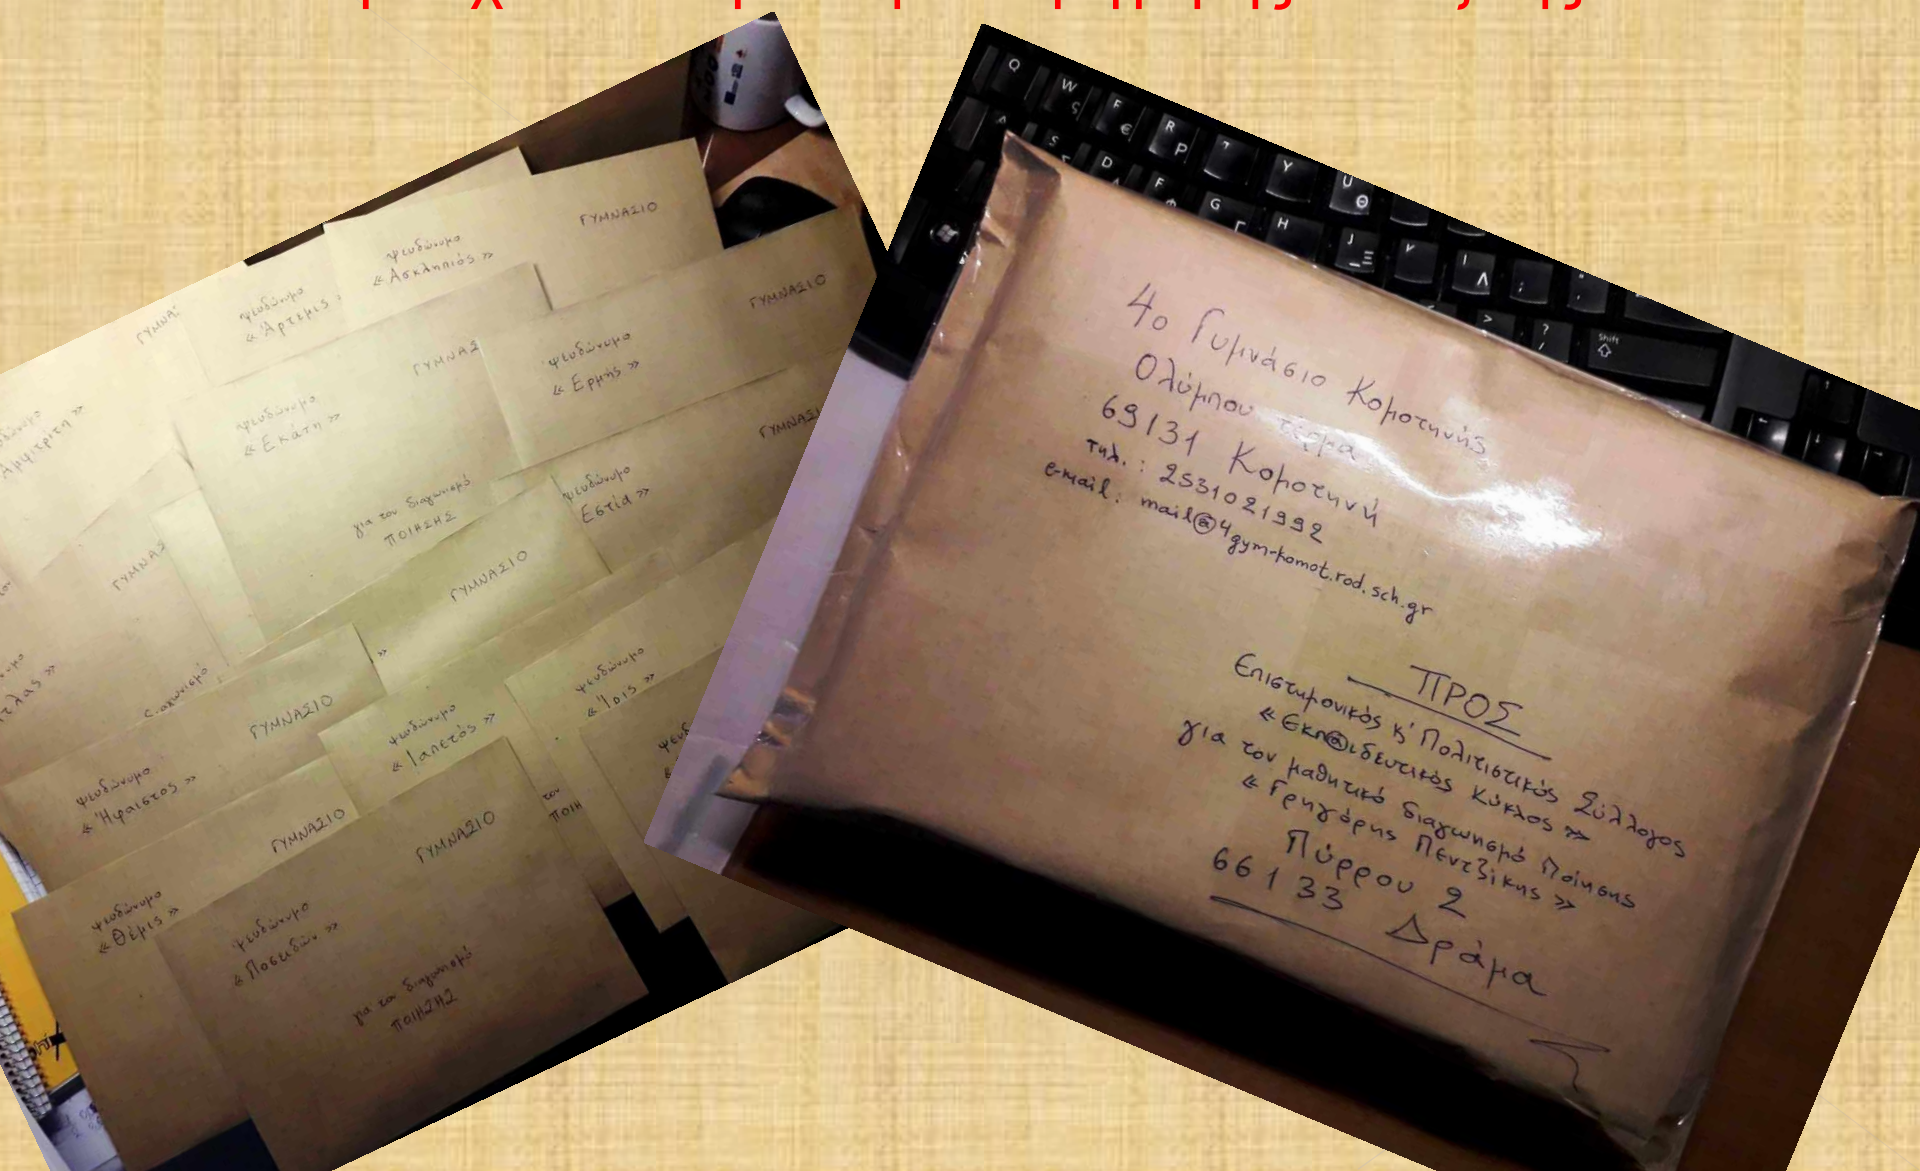 ΓΥΜΝΑΣΙΟ
ψευδώνυμο
« Ασκληπιός »
ψευδώνυμο
« Άρτεμις »
ΓΥΜΝΑΣΙΟ
ψευδώνυμο
« Ερμής »
ψευδώνυμο
« Εκάτη »
για τον διαγωνισμό
ΠΟΙΗΣΗΣ
Αμφιτρίτη »
ψευδώνυμο
Εστία »
ΓΥΜΝΑΣΙΟ
ΓΥΜΝΑΣΙΟ
ψευδώνυμο
« Ήφαιστος »
ψευδώνυμο
« Ιαπετός »
ψευδώνυμο
« Ίρις »
ΓΥΜΝΑΣΙΟ
ψευδώνυμο
« Θέμις »
ΓΥΜΝΑΣΙΟ
ψευδώνυμο
« Ποσειδών »
για τον διαγωνισμό
ΠΟΙΗΣΗΣ
4ο Γυμνάσιο Κομοτηνής
Ολύμπου τέρμα
69131 Κομοτηνή
τηλ. : 2531021992
e-mail: mail@4gym-komot.rod.sch.gr
ΠΡΟΣ
Επιστημονικός κ' Πολιτιστικός Σύλλογος
« Εκπ@ιδευτικός Κύκλος »
για τον μαθητικό διαγωνισμό Ποίησης
« Γρηγόρης Πεντζίκης »
Πύρρου 2
66133 Δράμα